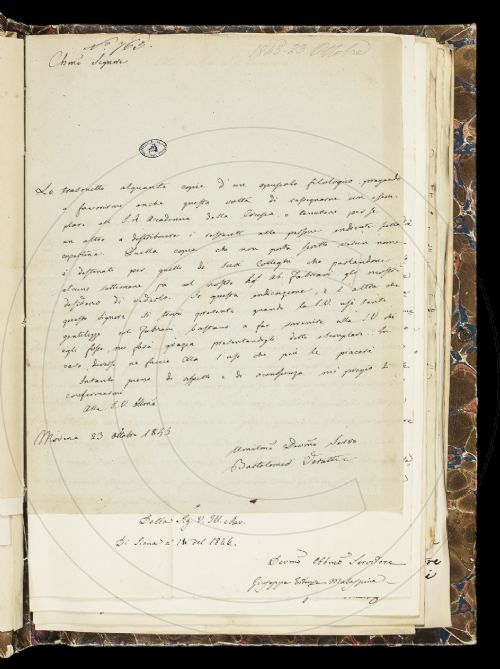 1843. 23 Ottobre
Chmo Signore
Le trasmetto alquante copie d'un opuscolo filologico, pregando
a favorirmi anche questa volta di rassegnarne un esem-
plare all' I. R. Accademia della Crusca e tenutone per se
un altro a distribuire i restanti alle persone indicate sulla
copertina. Quella copia che non porta scritto verun nome
è destinata per quello de' suoi Colleghi che parlandone
alcune settimane fa col nostro ab. Fabriani gli mostrò
desiderio di vederlo. Se questa indicazione, e l'altra che
questo Signore si trovò presente quando la S.V. usò tante
gentilezze al Fabriani bastano a far sovvenire alla S.V. chi
egli fosse, mi farà grazia presentandogli detto esemplare. In
caso diverso ne faccia Ella l'uso che più le piacerà
Intanto pieno di rispetto e di riconoscenza mi pregio di
confermarmi
Alla S.V. Illma
Modena 23 Ottobre 1843
Umilmo Devmo Servo
Bartolomeo Veratti
Della Sig. V. Ill. e
Di Siena a del 1846.
Devmo Obbmo Servidore
Giuseppe Malaspina